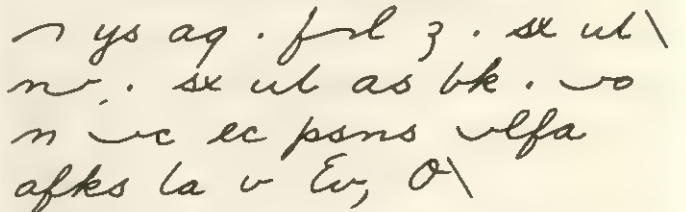 ys ag . frl z . sx ul\
. sx ul as bk . vo
n vc ec psns vlfa
afks la v Ev, O\